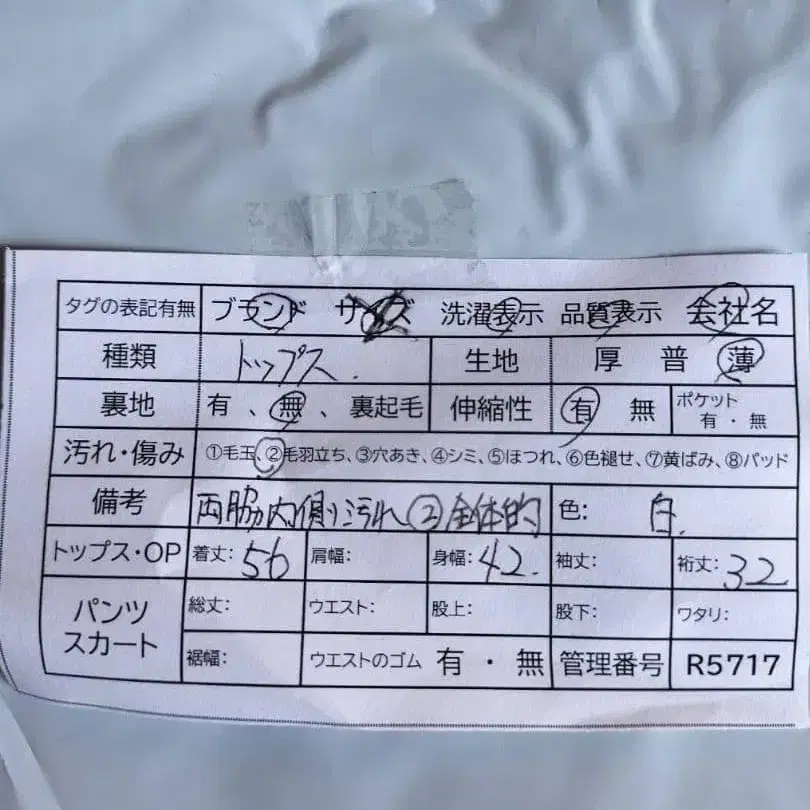 タグの表記有無 ブランド サイズ 洗濯表示 品質表示 会社名
種類 トップス. 生地 厚 普 薄
裏地 有、無、裏起毛 伸縮性 有 無 ポケット 有・無
汚れ・傷み ①毛玉、②毛羽立ち、③穴あき、④シミ、⑤ほつれ、⑥色褪せ、⑦黄ばみ、⑧パッド
備考 両脇内側汚れ ②全体的 色: 白.
トップス・OP 着丈: 56 肩幅: 身幅: 42. 袖丈: 裄丈: 32
パンツ スカート 総丈: ウエスト: 股上: 股下: ワタリ:
裾幅: ウエストのゴム 有・無 管理番号 R5717